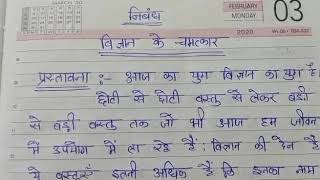 निबंध
FEBRUARY
MONDAY
2020
03
विज्ञान के चमत्कार
प्रस्तावना :- आज का युग विज्ञान का युग है।
छोटी से छोटी वस्तु से लेकर बड़ी
से बड़ी वस्तु तक जो भी आज हम जीवन
में उपयोग में ला रहे हैं; विज्ञान की देन है
ये वस्तुएँ इतनी अधिक हैं कि इनका नाम